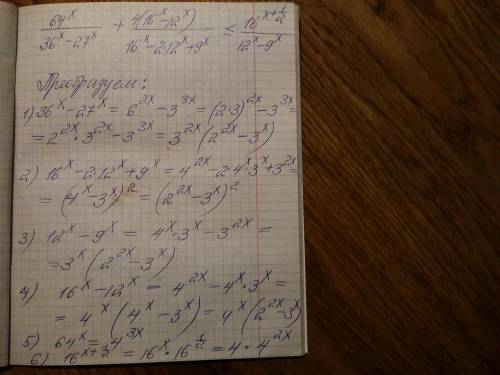 64^x/(36^x-27^x) + 4(16^x-12^x)/(16^x-2·12^x+9^x) ≤ 16^(x+1/2)/(12^x-9^x)
Преобразуем:
1) 36^x-27^x = 6^(2x)-3^(3x) = (2·3)^(2x)-3^(3x) =
= 2^(2x)·3^(2x)-3^(3x) = 3^(2x)(2^(2x)-3^x)
2) 16^x-2·12^x+9^x = 4^(2x)-2·4^x·3^x+3^(2x) =
= (4^x-3^x)^2 = (2^(2x)-3^x)^2
3) 12^x-9^x = 4^x·3^x-3^(2x) =
= 3^x(2^(2x)-3^x)
4) 16^x-12^x = 4^(2x)-4^x·3^x =
= 4^x(4^x-3^x) = 4^x(2^(2x)-3^x)
5) 64^x = 4^(3x)
6) 16^(x+1/2) = 16^x·16^(1/2) = 4·4^(2x)